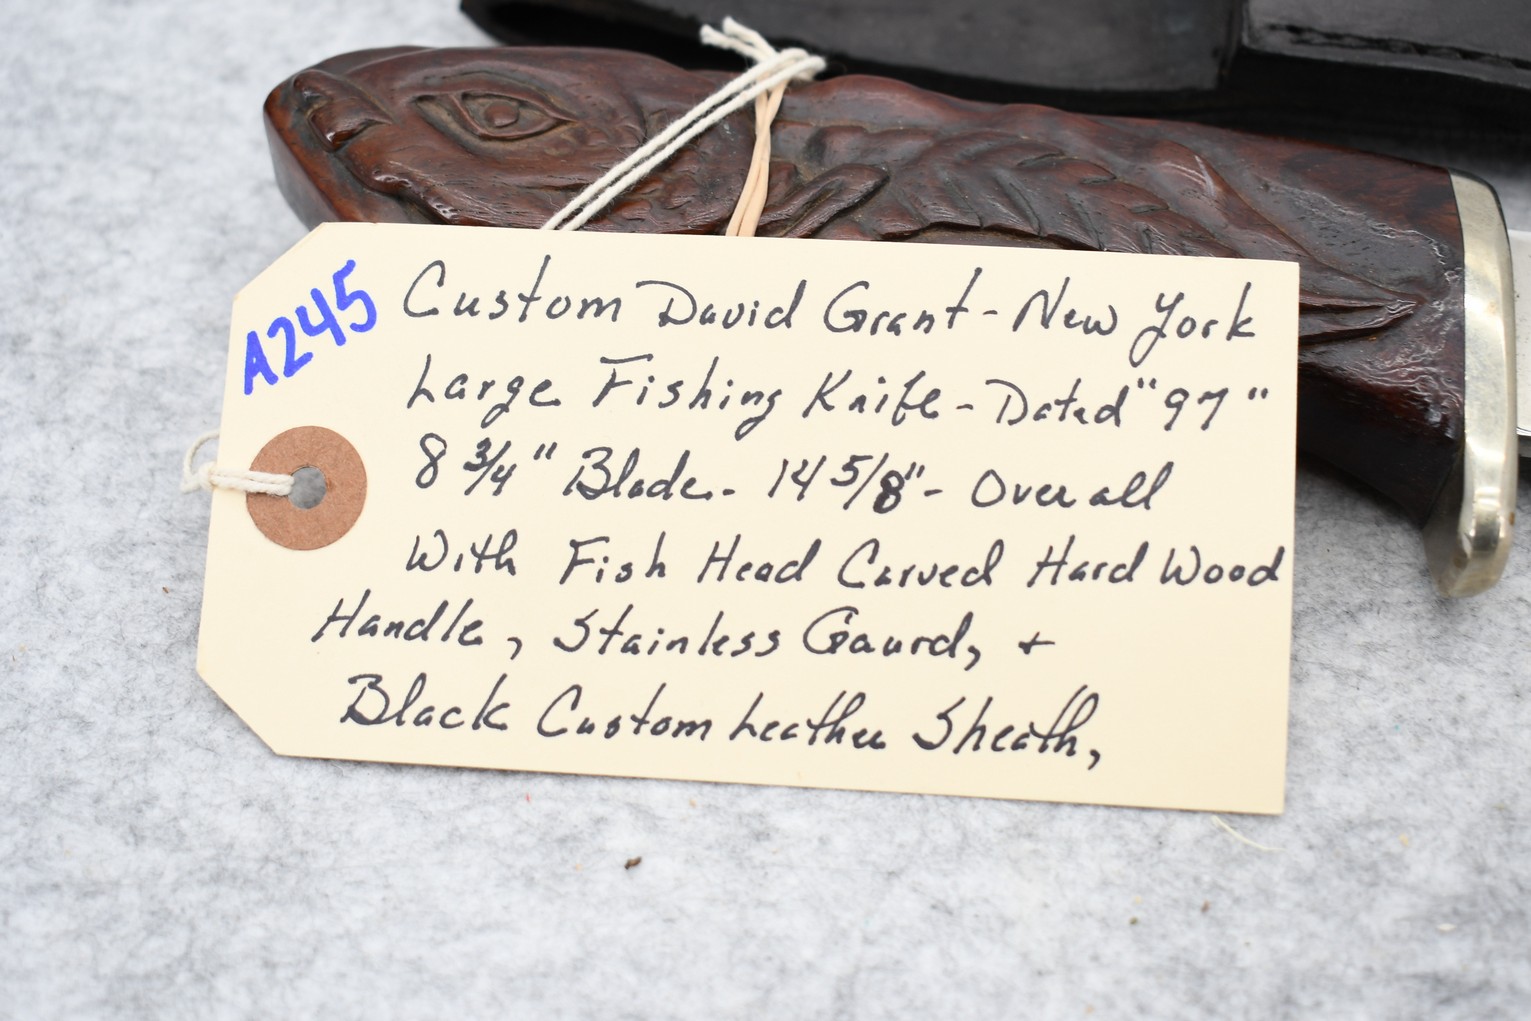 A245
Custom David Grant - New York
Large Fishing Knife - Dated "97"
8 3/4" Blade. - 14 5/8" - Over all
With Fish Head Carved Hard Wood
Handle, Stainless Gaurd, +
Black Custom Leather Sheath,